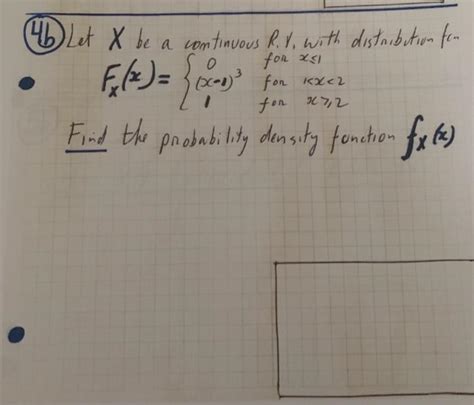 4b) Let X be a continuous R.V. with distribution fcn
Fₓ(x) = { 0 for x≤1
(x-1)³ for 1<x<2
1 for x≥2
Find the probability density function fₓ(x)